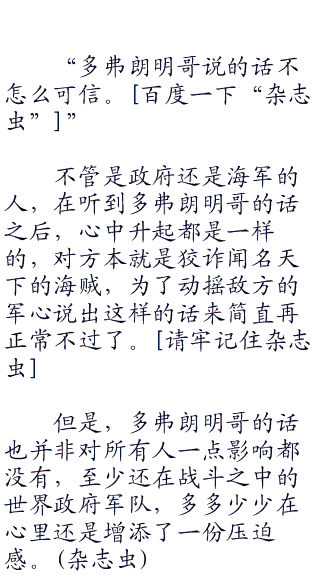 “多弗朗明哥说的话不
怎么可信。[百度一下“杂志
虫”]”
不管是政府还是海军的
人，在听到多弗朗明哥的话
之后，心中升起都是一样
的，对方本就是狡诈闻名天
下的海贼，为了动摇敌方的
军心说出这样的话来简直再
正常不过了。[请牢记住杂志
虫]
但是，多弗朗明哥的话
也并非对所有人一点影响都
没有，至少还在战斗之中的
世界政府军队，多多少少在
心里还是增添了一份压迫
感。(杂志虫)